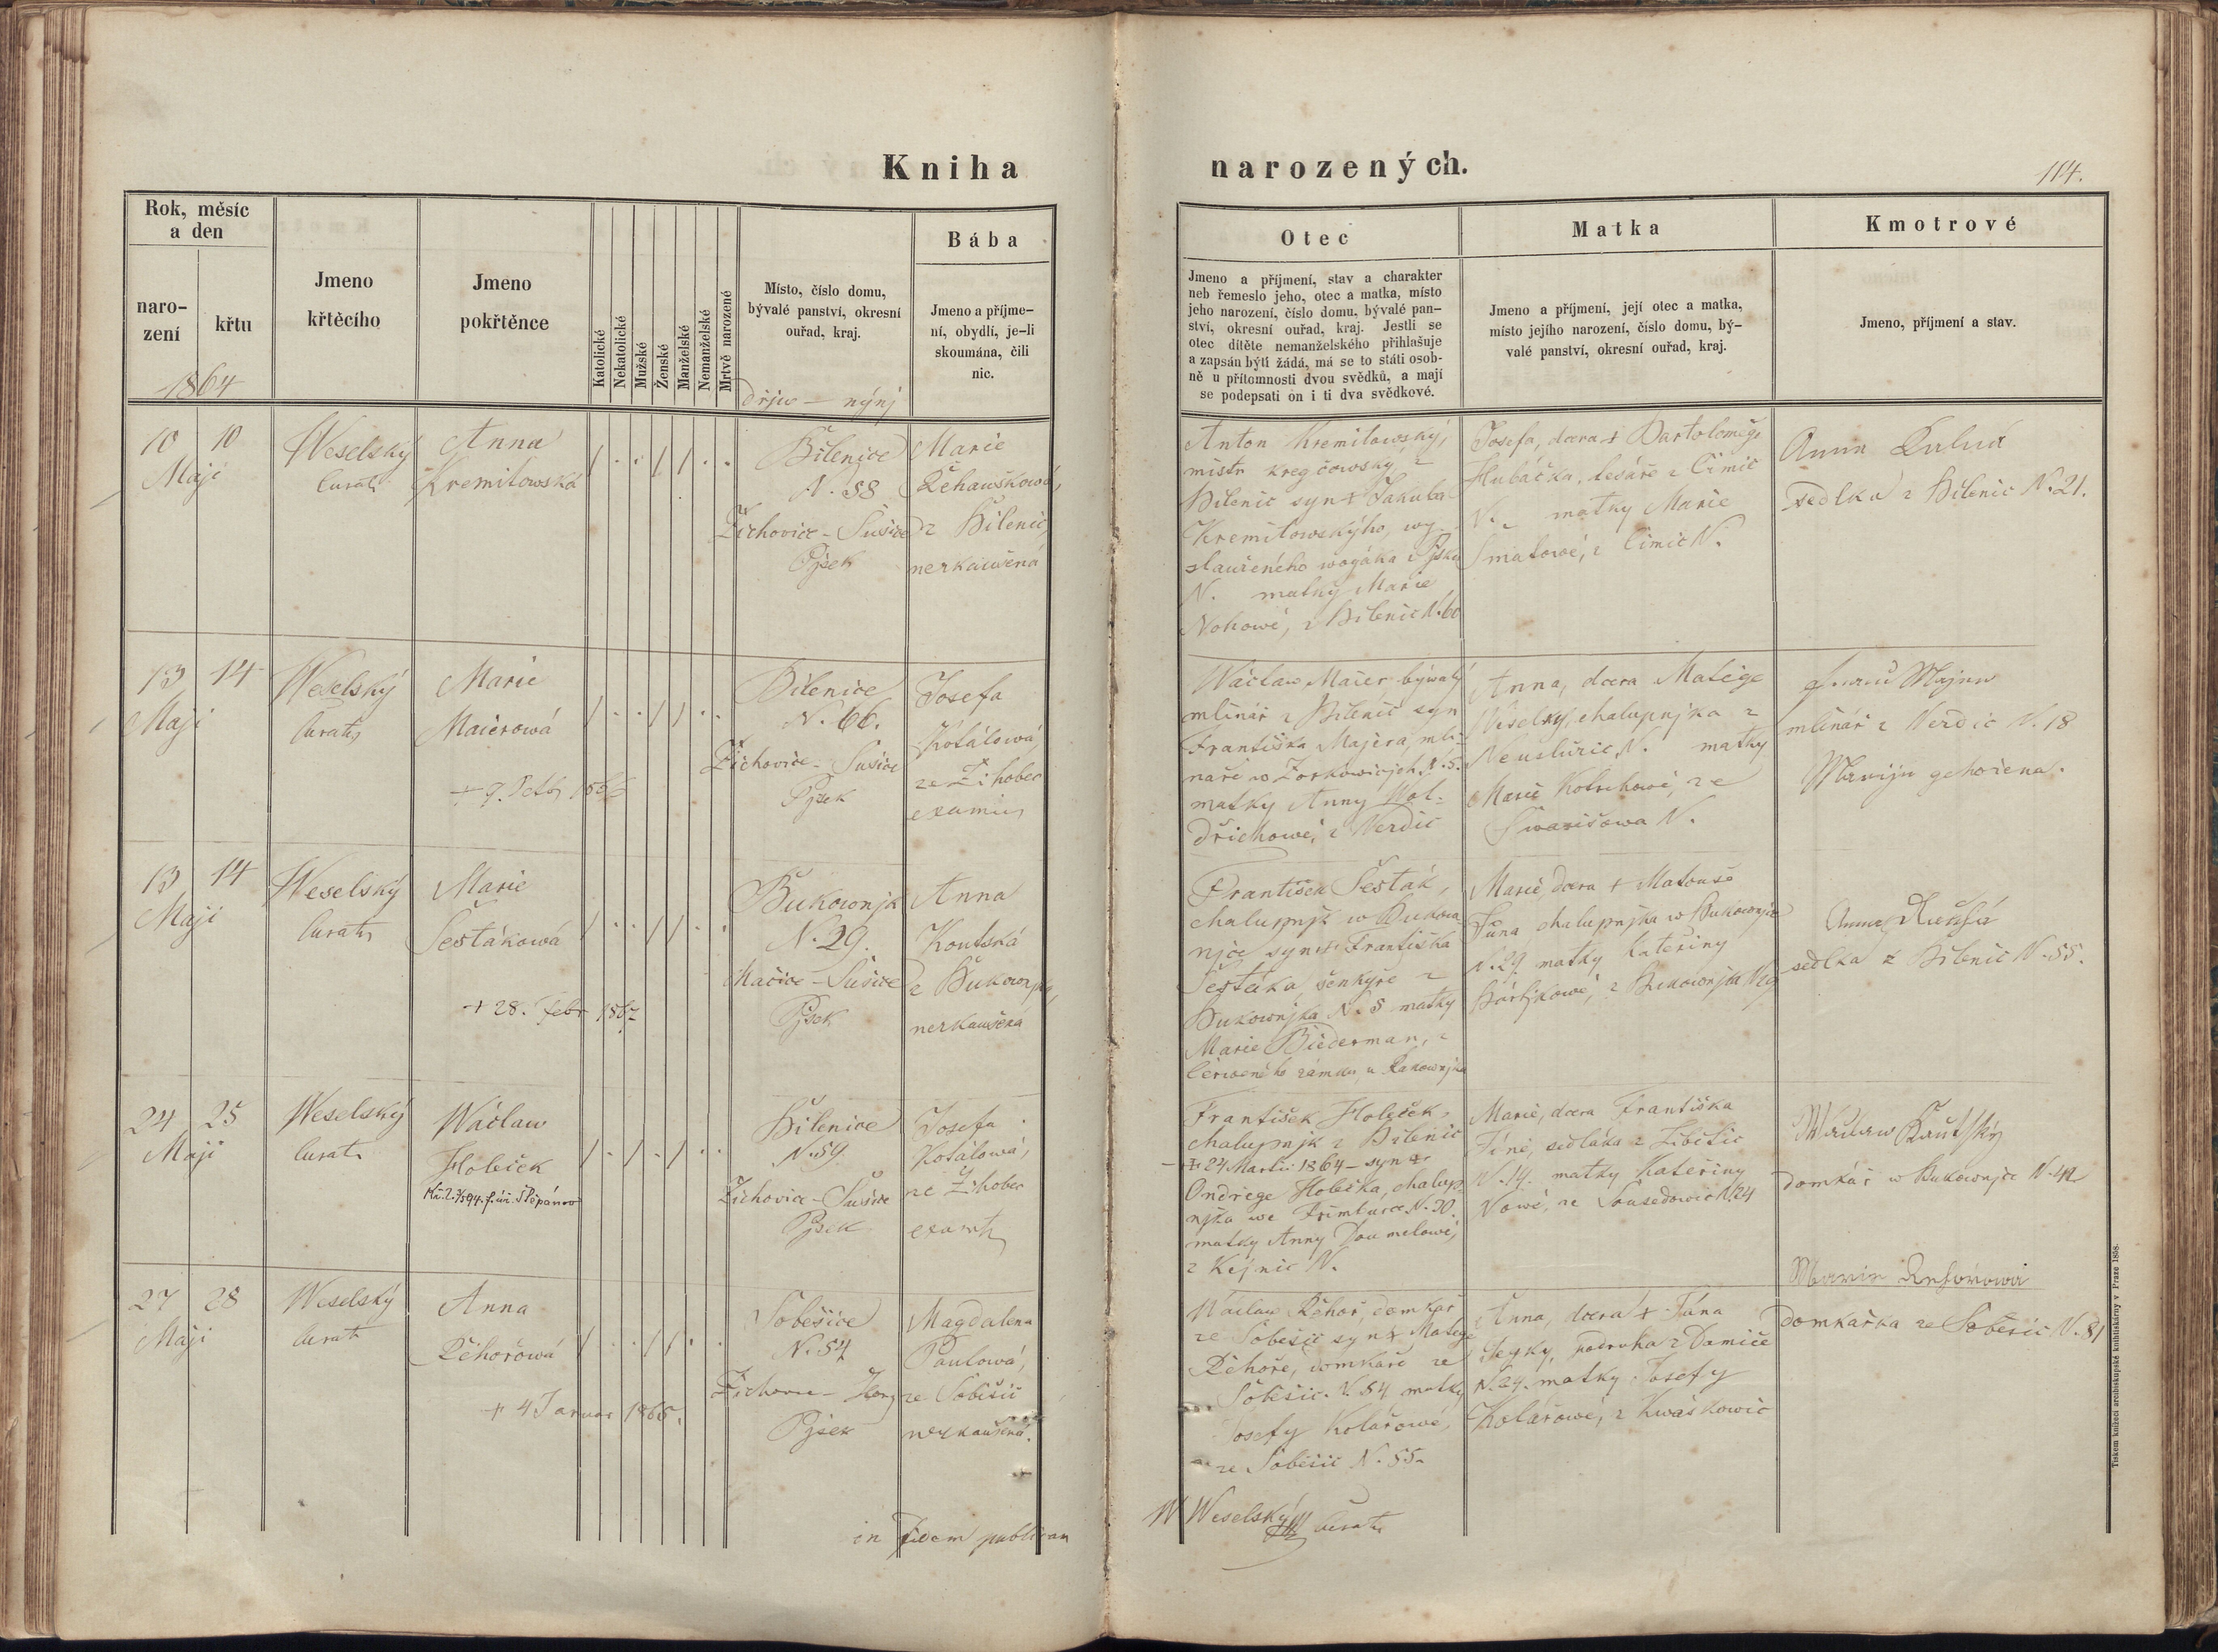 Kniha
narozených.
114.
Rok, měsíc
a den
naro-
zení
křtu
1864
Jmeno
křtěcího
Jmeno
pokřtěnce
Katolické
Nekatolické
Mužské
Ženské
Manželské
Nemanželské
Mrtvě narozené
Místo, číslo domu,
bývalé panství, okresní
ouřad, kraj.
dřjw — nýnj
Bába
Jmeno a příjme-
ní, obydlí, je-li
skoumána, čili
nic.
Otec
Jmeno a příjmení, stav a charakter
neb řemeslo jeho, otec a matka, místo
jeho narození, číslo domu, bývalé pan-
ství, okresní ouřad, kraj. Jestli se
otec dítěte nemanželského přihlašuje
a zapsán býti žádá, má se to státi osob-
ně u přítomnosti dvou svědků, a mají
se podepsati on i ti dva svědkové.
Matka
Jmeno a příjmení, její otec a matka,
místo jejího narození, číslo domu, bý-
valé panství, okresní ouřad, kraj.
Kmotrové
Jmeno, příjmení a stav.
10 10
Maji
Weselský
Curat
Anna
Kremilowská
Bilenice
N. 58
Žichovice - Sušice
Pjsek
Marie
Řehauškowá,
z Bilenic,
nezkaušená
Anton Kremilowský,
mistr kregčowský z
Bilenic syn + Jakuba
Kremilowskýho, wy-
slauženého wogáka z Pjsku
N. matky Marie
Nohowé, z Bilenic N. 60
Josefa, dcera + Bartoloměge
Hubáčka, tesaře z Čimic
N. matky Marie
Smatowé, z Čimic N.
Anna
sedlka z Bilenic N. 21.
13 14
Maji
Weselský
Curat
Marie
Maierowá
Bilenice
N. 66.
Žichovice - Sušice
Pjsek
Josefa
Kotálowá,
ze Žihobec
Wáclaw Maier býwalý
mlinář z Bilenic syn
Františka Majera, mli-
náře w Zorkowicjch N. 5.
matky Anny Wol-
dřichowé, z Nerdic
Anna, dcera Matěge
Weselký, chalupnjka z
N. matky
Marie Kotrchowé, ze
Swarišowa N.
mlinář z Nerdic N. 18
gehožena.
13 14
Maji
Weselský
Curat
Marie
Šestákowá
+ 28. Febr 1867
Bukownjk
N. 29.
Mačice - Sušice
Pjsek
Anna
Koutská
z Bukownjka,
nezkaušená
František Šesták,
chalupnjk w Bukow-
njce syn + Františka
Šestáka, šenkýře z
Bukownjka N. 8 matky
Marie Biederman, z
Čerweného zámku, u Rakownjka
Marie dcera + Matouše
Tůna chalupnjka w Bukownjce
N. 29. matky Kateřiny
Bártjkowé, z Bukownjka N. 29
Anna
sedlka z Bilenic N. 55.
24 25
Maji
Weselský
Curat
Wáclaw
Holeček
Bilenice
N. 59.
Žichovice - Sušice
Pjsek
Josefa
Kotálowá,
ze Žihobec
František Holeček,
chalupnjk z Bilenic
+ 24 Martii 1864 - syn +
Ondřege Holečka, chalup-
njka we Frimburce N. 30.
matky Anny Doumelowé,
z Kejnic N.
Marie, dcera Františka
Fíně, sedláka z Libětic
N. 14. matky Kateřiny
Nowé, ze Sousedowic N. 24
Wáclaw Kautský
domkář w Bukownjce N. 42
27 28
Maji
Weselský
Curat
Anna
Řehořowá
+ 4 Januar 1865.
Soběšice
N. 54
Žichowice - Horaž
Pjsek
Magdalena
Paulowá,
ze Soběšic
nezkaušená.
Wáclaw Řehoř, domkář
ze Soběšic syn + Matěge
Řehoře, domkáře ze
Soběšic N. 54 matky
Josefy Kolářowé,
ze Soběšic N. 55.
Anna, dcera + Jána
podruha z Damiče
N. 24. matky Josefy
Kolářowé, z Kwaskowic
Marie Řehořowá
domkařka ze Soběšic N. 81
in fidem publicam
W Weselský Curat
Tiskem knížecí arcibiskupské knihtiskárny v Praze 1858.